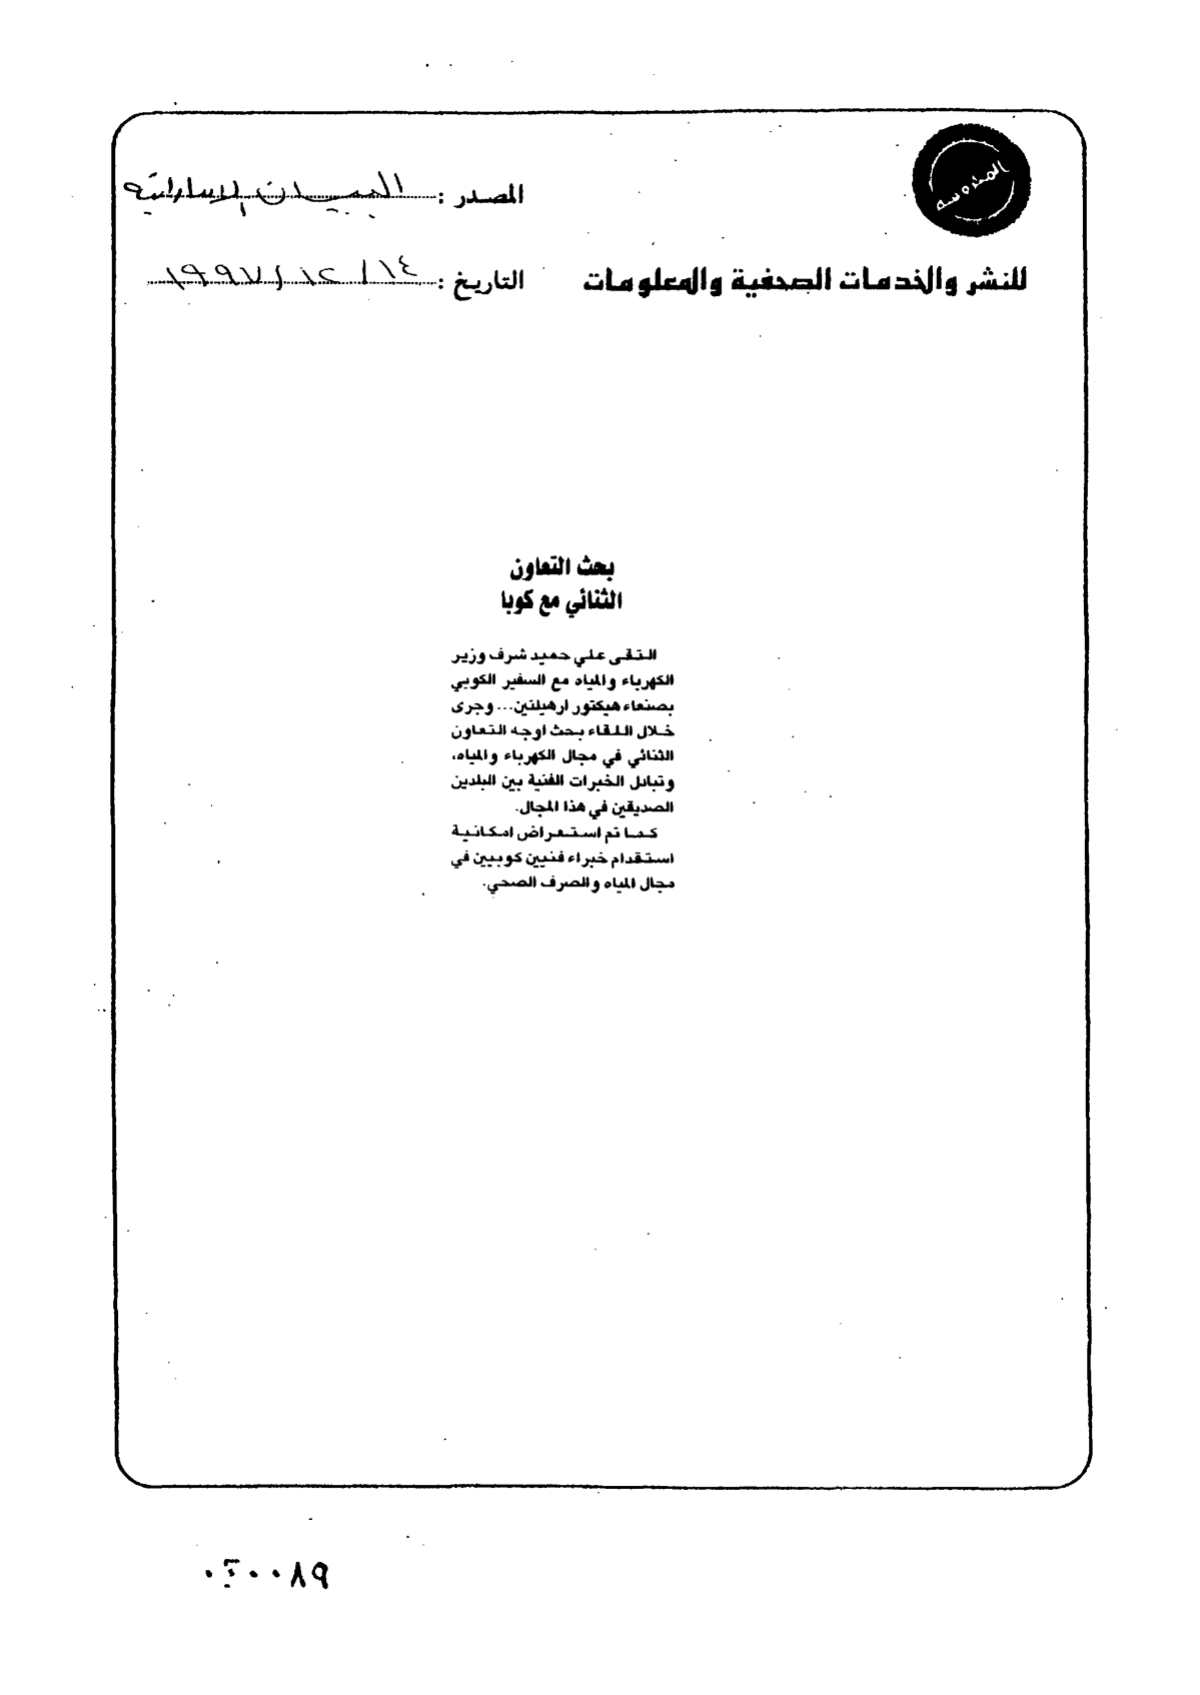 المحروسة
المصدر : البيان الإماراتية
للنشر والخدمات الصحفية والمعلومات
التاريخ : ١٤ / ١٢ / ١٩٩٧
بحث التعاون
الثنائي مع كوبا
التقى علي حميد شرف وزير
الكهرباء والمياه مع السفير الكوبي
بصنعاء هيكتور ارهيلنين... وجرى
خلال اللقاء بحث اوجه التعاون
الثنائي في مجال الكهرباء والمياه،
وتبادل الخبرات الفنية بين البلدين
الصديقين في هذا المجال.
كما تم استعراض امكانية
استقدام خبراء فنيين كوبيين في
مجال المياه والصرف الصحي.